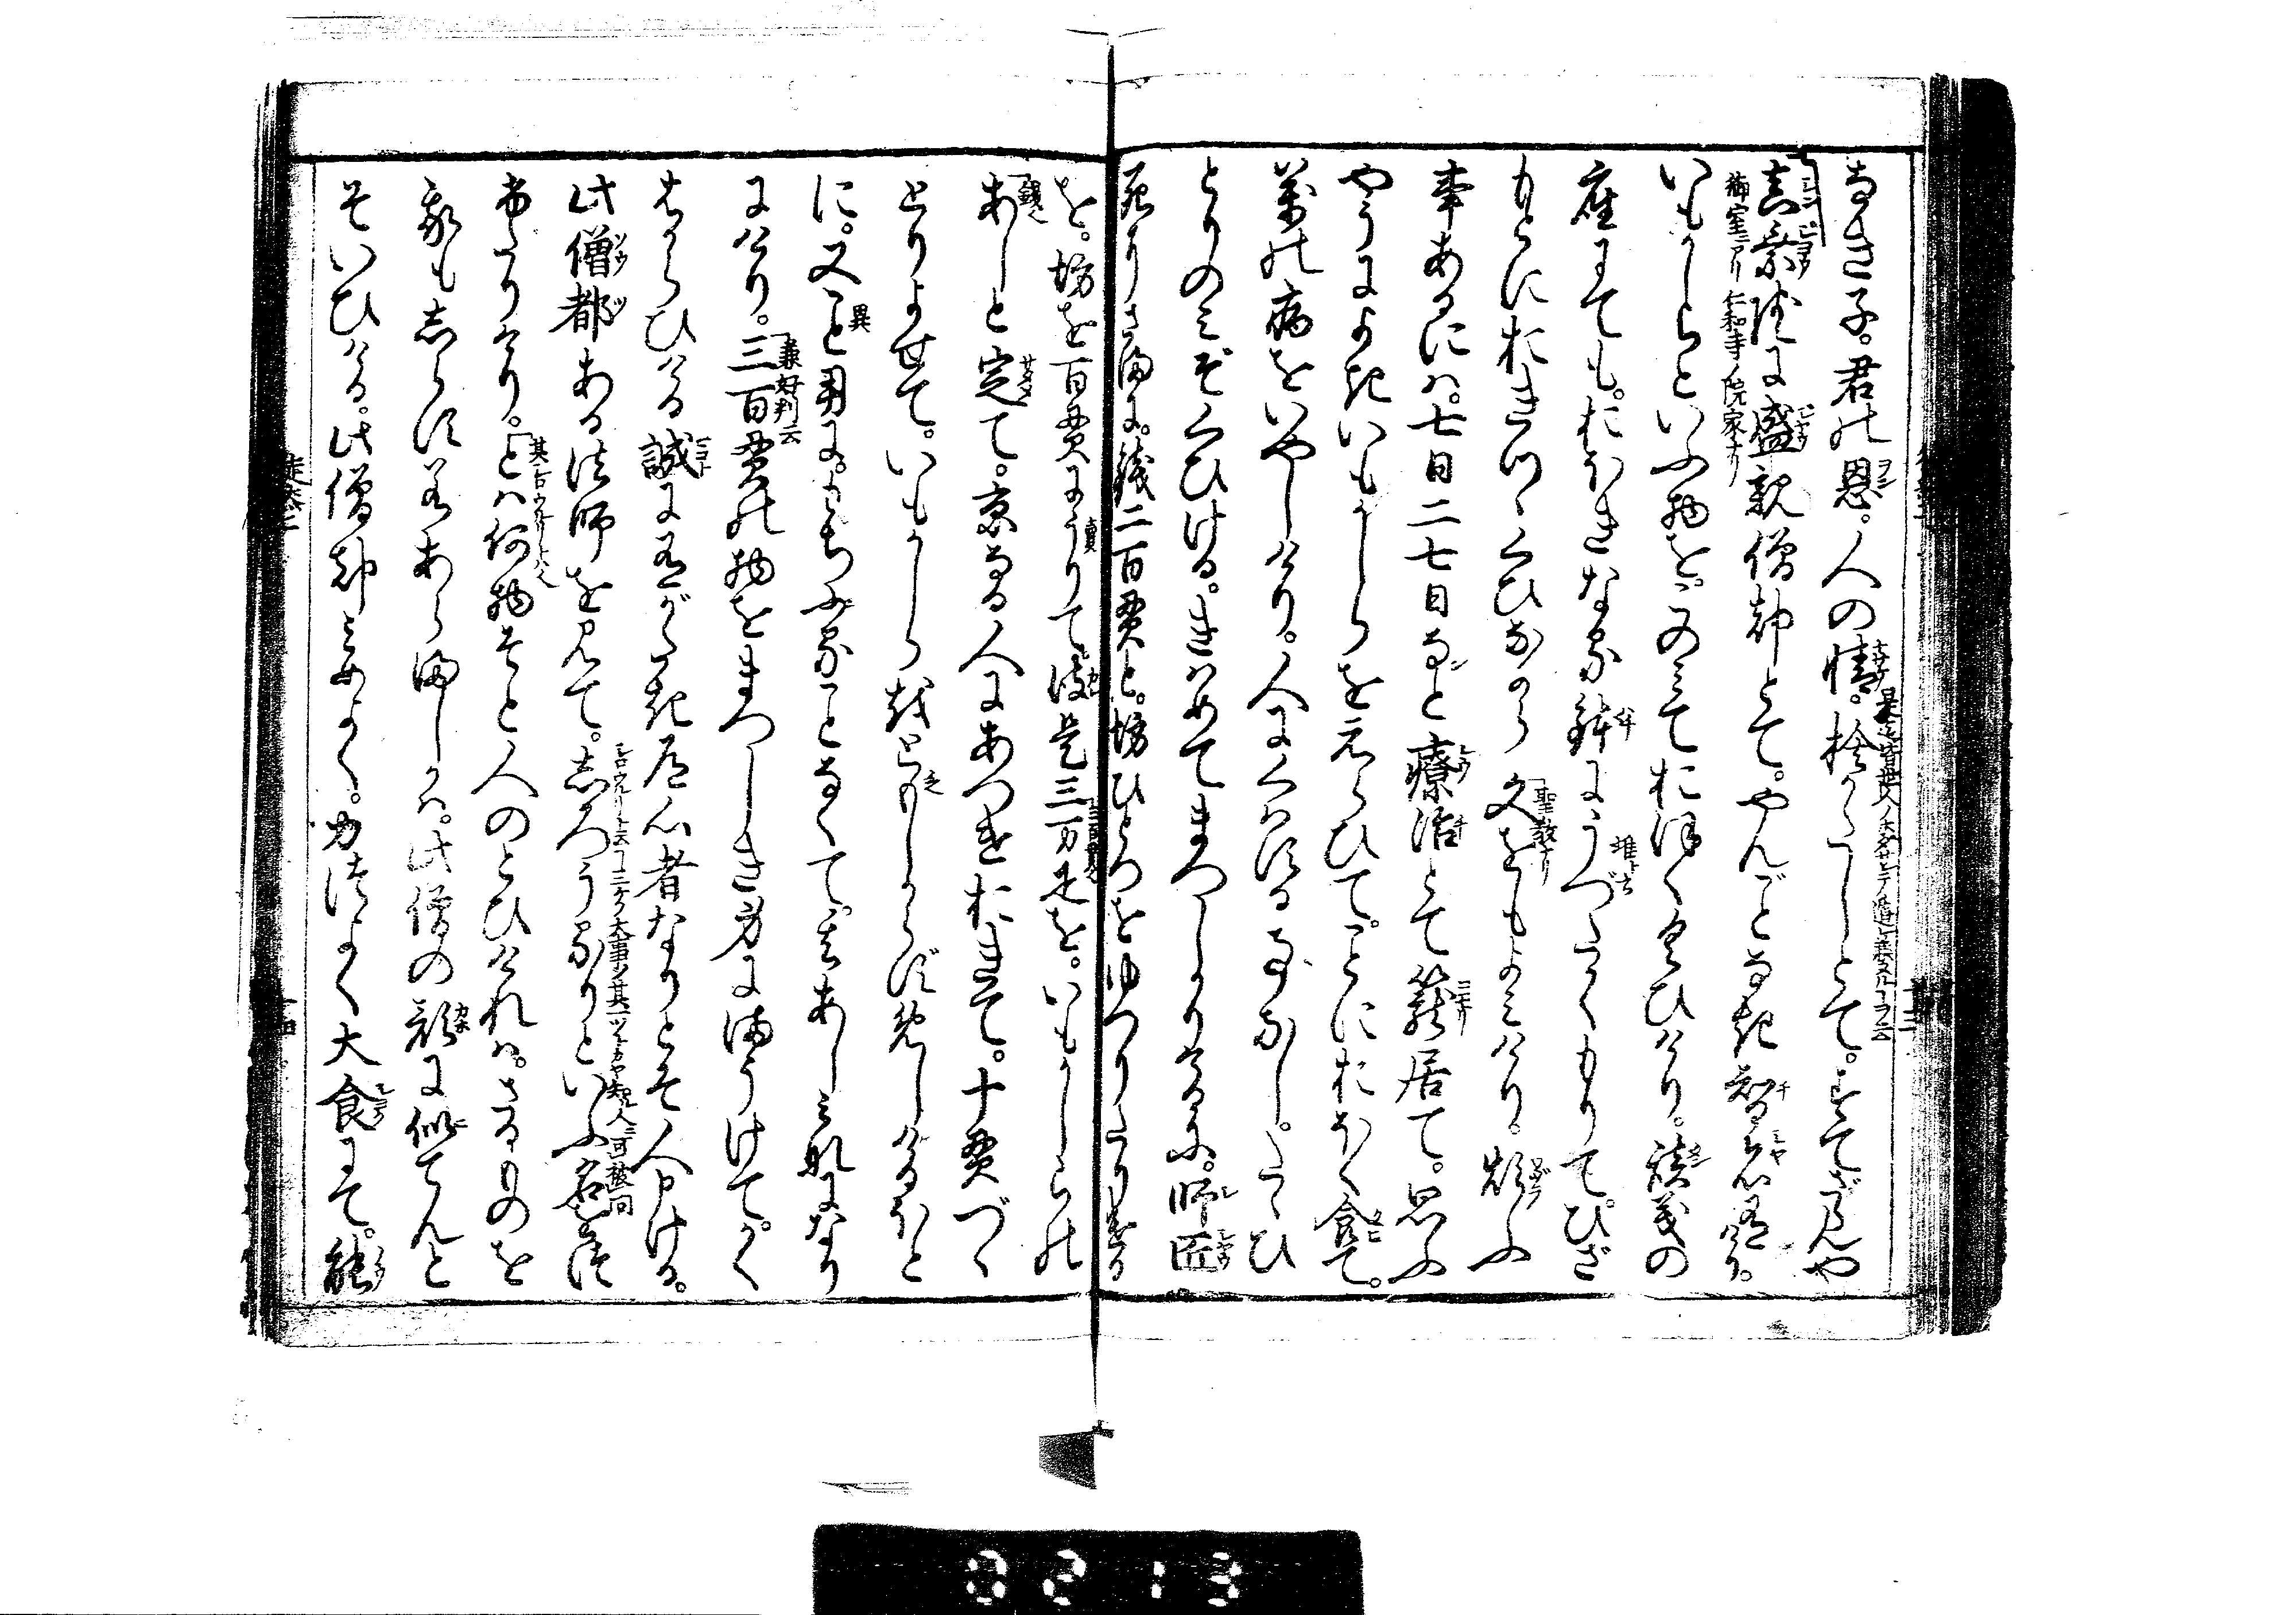 なき子。君の恩。人の情。捨がたしとて。すてざらんや
真乗院に盛親僧都とて。やんごとなき智者有けり。
御室ニアリ仁和寺ノ院家ナリ
いもがしらといふ物を。このみておほくくひけり。談義の
座にても。おほきなる鉢にうづたかくもりて。ひざ
もとにおきつゝくひながら文をもよみけり。煩ふ
聖教ナリ
事あるには。七日二七日など療治とて籠居て。思ふ
やうによきいもがしらをえらひて。ことにおほく食て。
万の病をいやしけり。人にくはする事なし。たゞひ
とりのみぞくひける。きはめてまつしかりけるに。師匠
死にさまに。銭二百貫と。坊ひとつをゆつりたりける
を。坊を百貫にうりて。彼是三万疋を。いもがしらの
あしと定て。京なる人にあつけおきて。十貫づゝ
とりよせて。いもがしらをともしからずめしけるほと
に。又こと用に。もちふることなくて。其あしみなになり
にけり。三百貫の物をまつしき身にまうけて。かく
兼好判云
はからひける誠に有がたき道心者なりとぞ人申ける。
此僧都ある法師を見て。しろうるりといふ名を
つけたりけり。とは何物ぞと人のとひければ。さるものを
我もしらず若あらましかば。此僧の顔に似てんと
ぞいひける。此僧都みめよく。力つよく大食にて。能